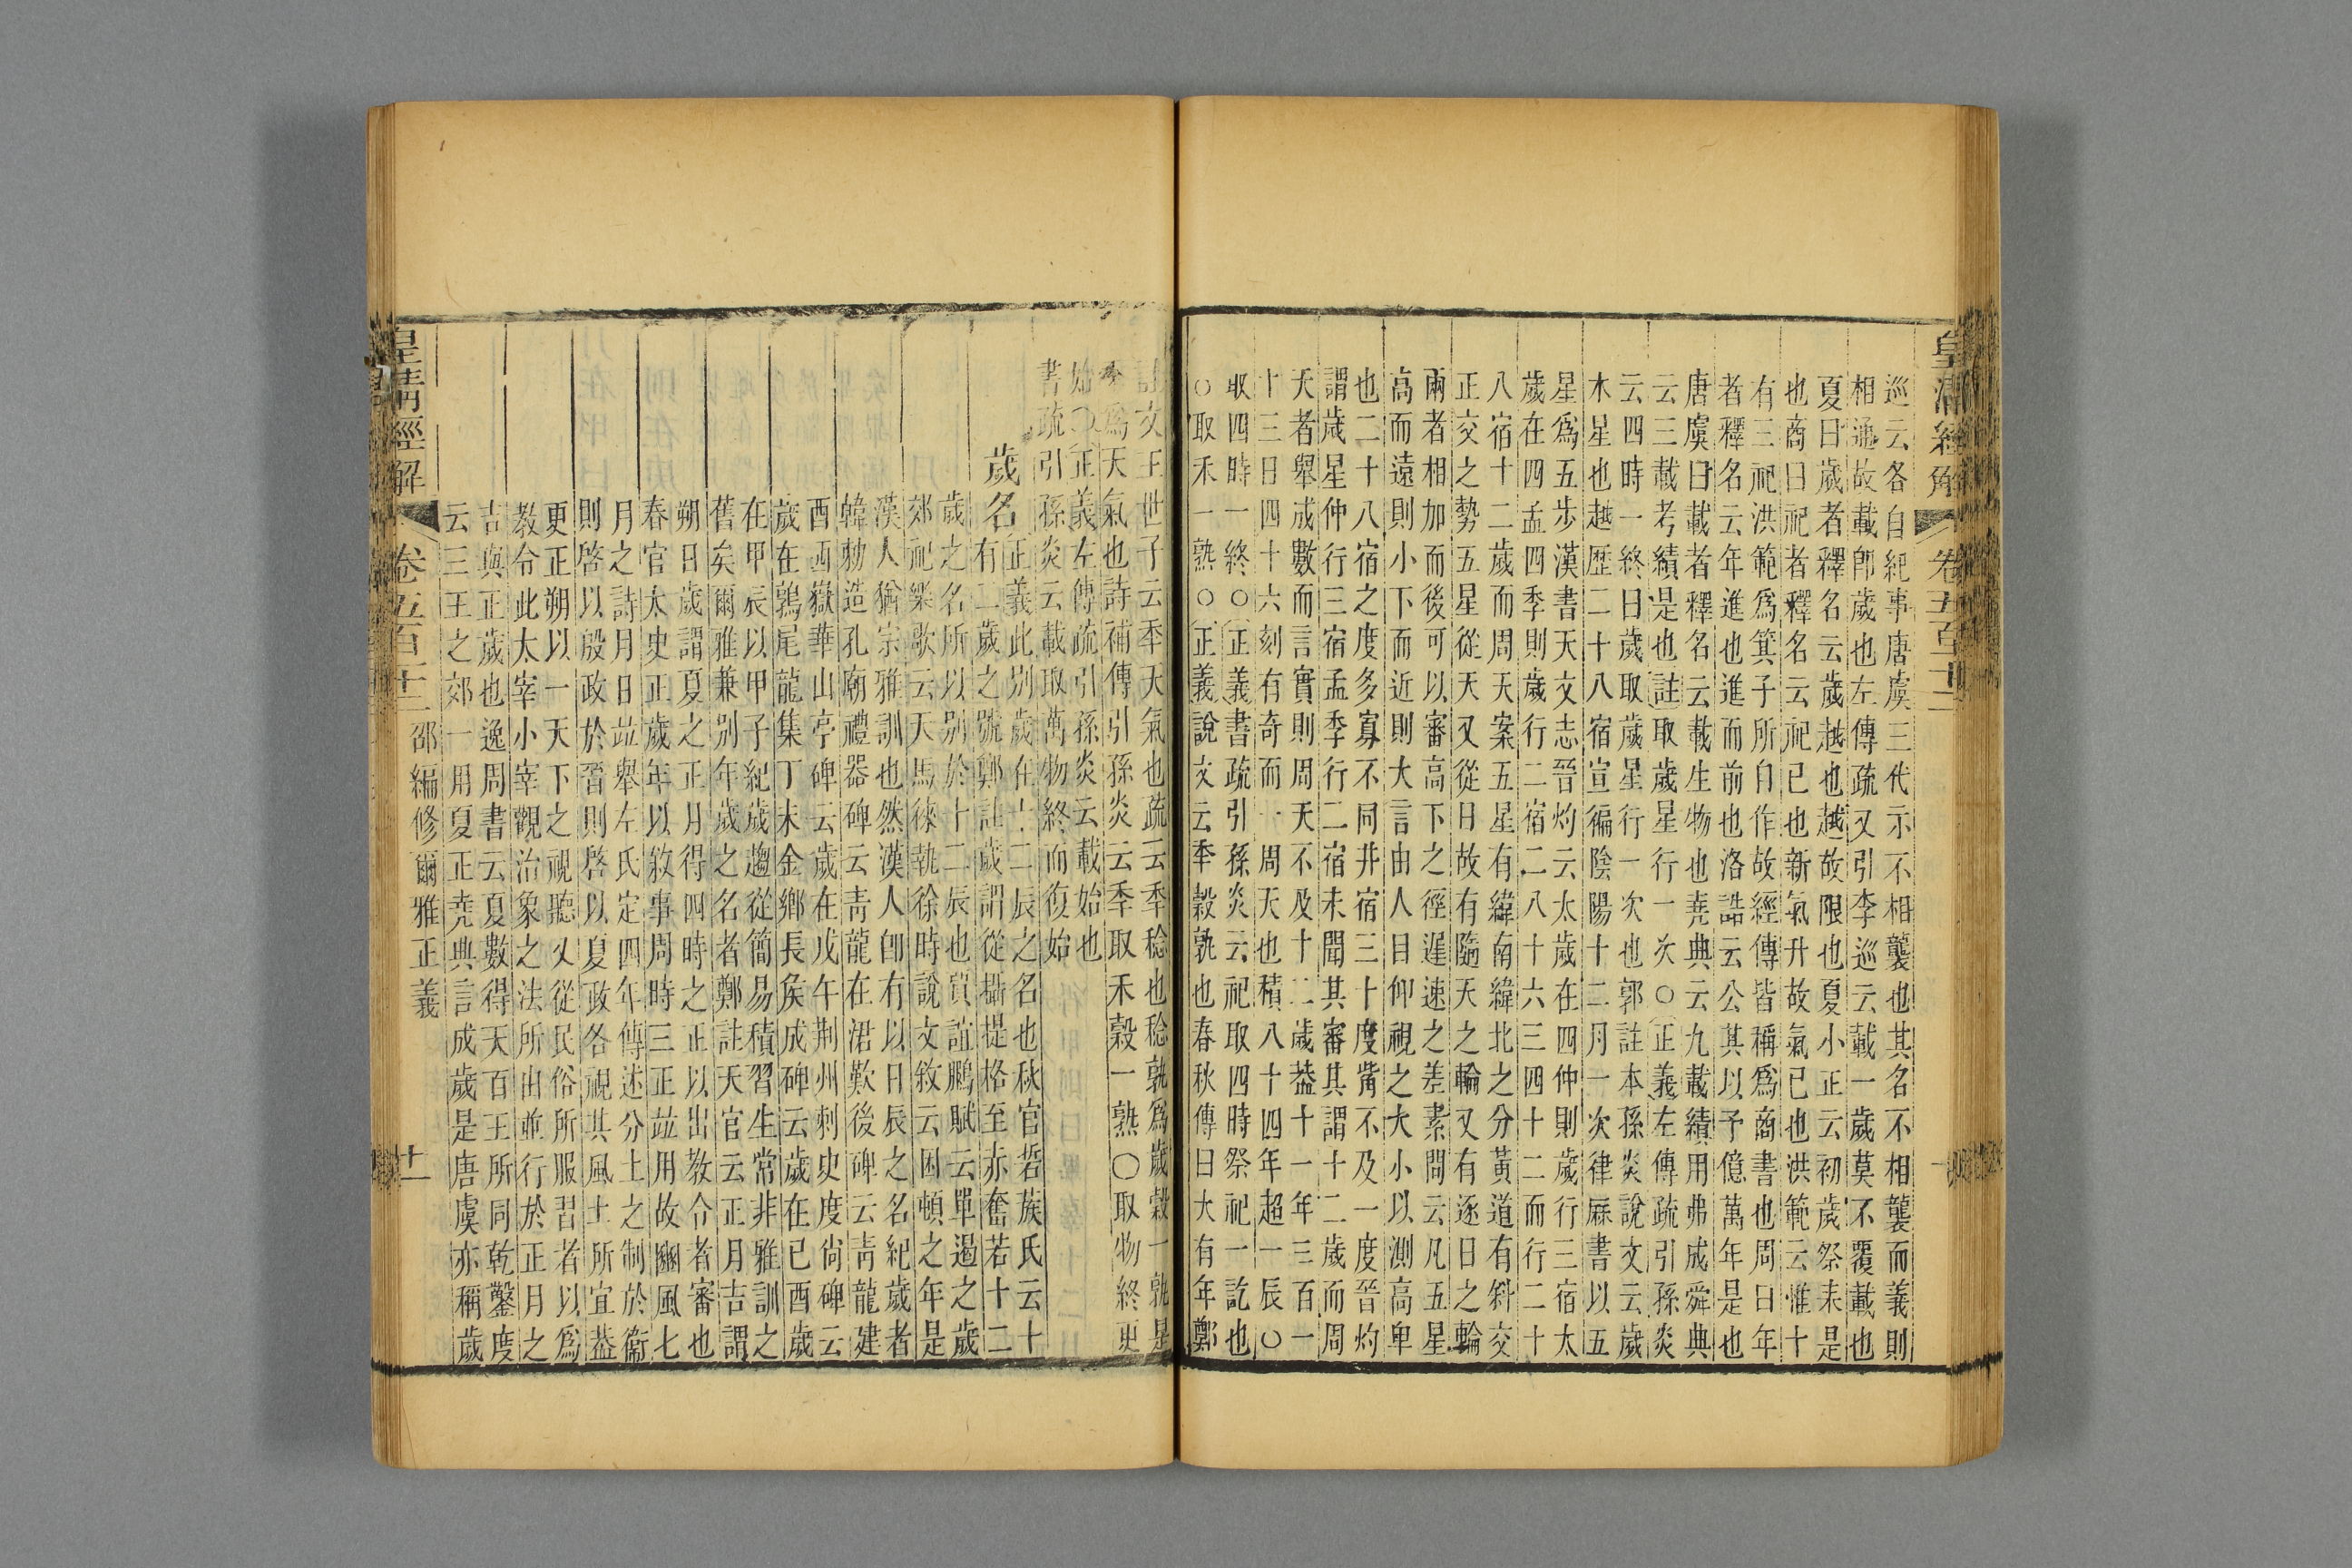 皇清經解 卷五百十二
巡云各自紀事唐虞三代示不相襲也其名不相襲而義則
相通故載卽歲也左傳疏又引李巡云載一歲莫不覆載也
夏曰歲者釋名云歲越也越故限也夏小正云初歲祭耒是
也商曰祀者釋名云祀已也新氣升故氣已也洪範云惟十
有三祀洪範爲箕子所自作故經傳皆稱爲商書也周曰年
者釋名云年進也進而前也洛誥云公其以予億萬年是也
唐虞曰載者釋名云載生物也堯典云九載績用弗成舜典
云三載考績是也註取歲星行一次○正義左傳疏引孫炎
云四時一終曰歲取歲星行一次也郭註本孫炎說文云歲
木星也越歷二十八宿宣徧陰陽十二月一次律厤書以五
星爲五步漢書天文志晉灼云太歲在四仲則歲行三宿太
歲在四孟四季則歲行二宿二八十六三四十二而行二十
八宿十二歲而周天案五星有緯南緯北之分黃道有斜交
正交之勢五星從天又從日故有隨天之輪又有逐日之輪
兩者相加而後可以審高下之徑遲速之差素問云凡五星
高而遠則小下而近則大言由人日仰視之大小以測高卑
也二十八宿之度多寡不同井宿三十度觜不及一度晉灼
謂歲星仲行三宿孟季行二宿未聞其審其謂十二歲而周
天者舉成數而言實則周天不及十二歲葢十一年三百一
十三日四十六刻有奇而一周天也積八十四年超一辰○
取四時一終○正義書疏引孫炎云祀取四時祭祀一訖也
○取禾一熟○正義說文云秊穀孰也春秋傳曰大有年鄭
註文王世子云秊天氣也疏云秊稔也稔孰爲歲穀一孰是
秊爲天氣也詩補傳引孫炎云秊取禾穀一熟○取物終更
始○正義左傳疏引孫炎云載始也
書疏引孫炎云載取萬物終而復始
歲名正義此別歲在十二辰之名也秋官硩蔟氏云十
有二歲之號鄭註歲謂從攝提格至赤奮若十二
歲之名所以別於十二辰也賈誼鵩賦云單遏之歲
郊祀樂歌云天馬徠執徐時說文敘云困頓之年是
漢人猶宗雅訓也然漢人卽有以日辰之名紀歲者
韓勑造孔廟禮器碑云靑龍在涒歎後碑云靑龍建
酉西嶽華山亭碑云歲在戊午荆州刺史度尙碑云
歲在鶉尾龍集丁未金鄉長侯成碑云歲在己酉歲
在甲辰以甲子紀歲趨從簡易積習生常非雅訓之
舊矣爾雅兼別年歲之名者鄭註天官云正月吉謂
朔日歲謂夏之正月得四時之正以出教令者審也
春官太史正歲年以敘事周時三正竝用故豳風七
月之詩月日竝舉左氏定四年傳述分土之制於衞
則啓以殷政於晉則啓以夏政各視其風土所宜葢
更正朔以一天下之視聽又從民俗所服習者以爲
教令此太宰小宰觀治象之法所由並行於正月之
吉與正歲也逸周書云夏數得天百王所同乾鑿度
云三王之郊一用夏正堯典言成歲是唐虞亦稱歲
皇淸經解 卷五百十二 邵編修爾雅正義 十一